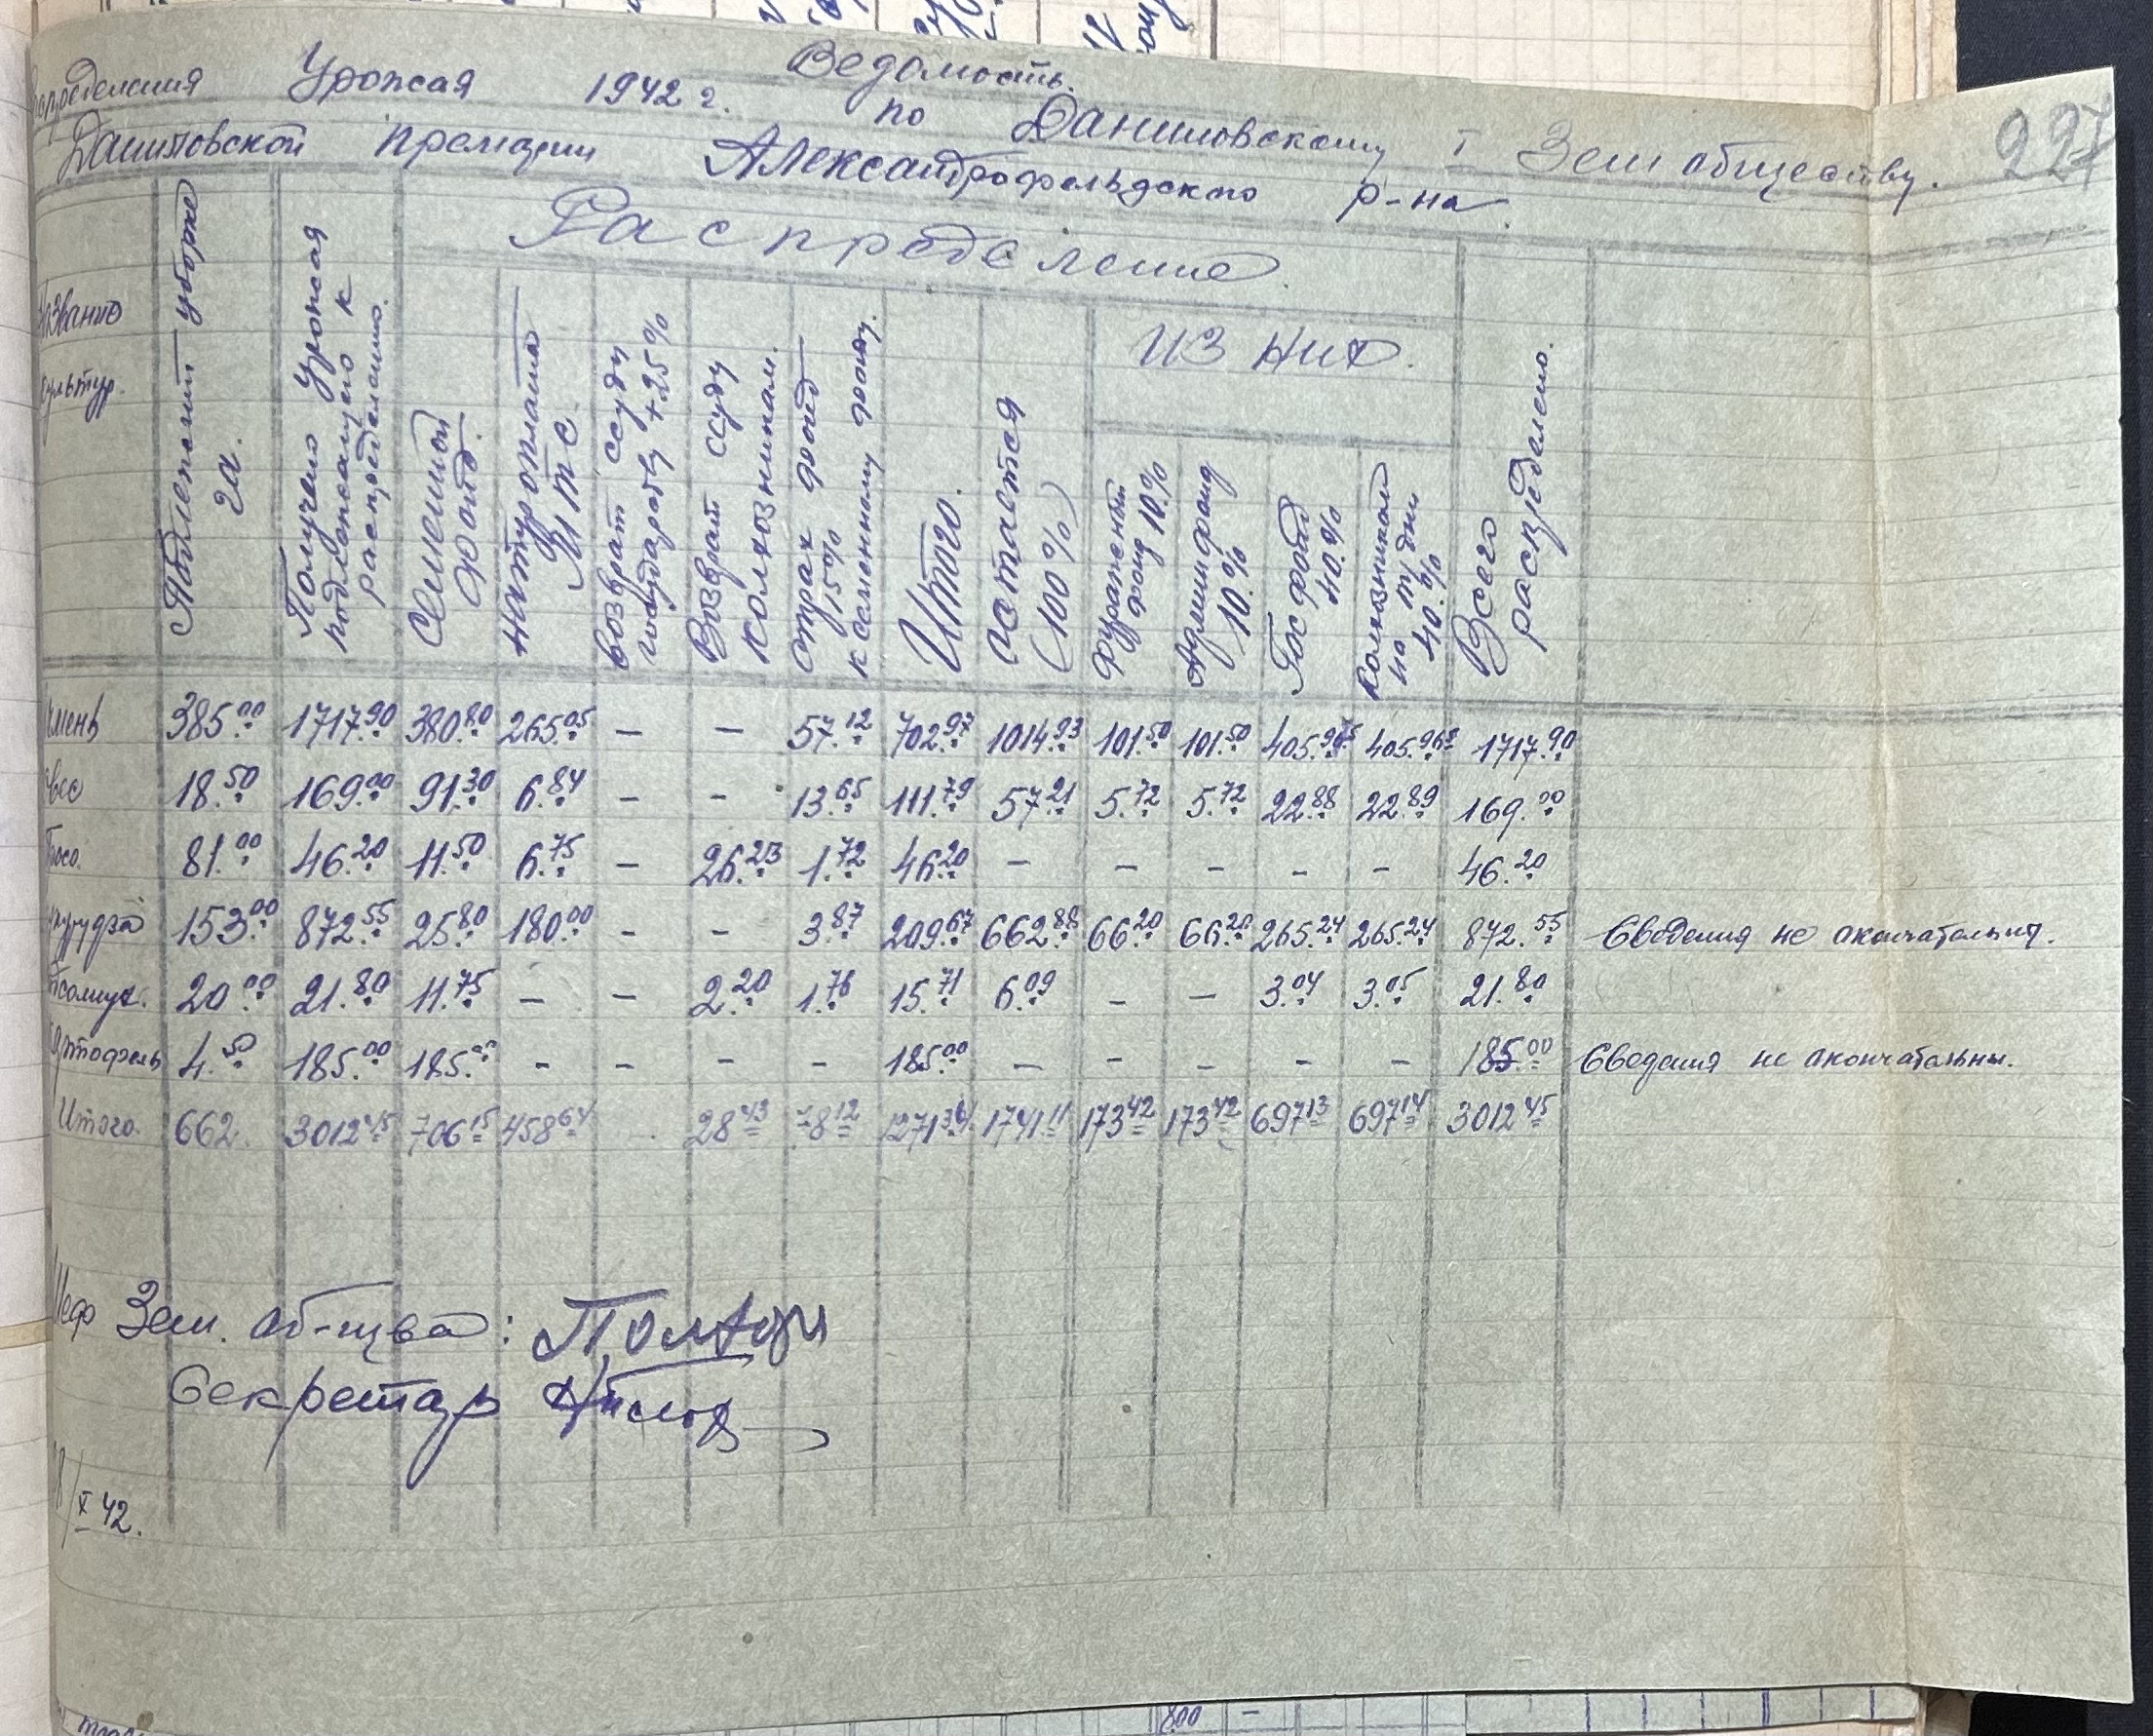 Ведомость.
распределения Урожая 1942 г. по Даниловскому I Земобществу.
Данитовской Премарии Александрофельдского р-на.
227
Название культур.
Подлежит уборке га.
Получено урожая подлежащего к распределению.
Распределение.
Семенной фонд.
Натуроплата МТС.
Возврат ссуды государству +25%
Возврат ссуды колхозникам.
Страх фонд 15% к семенному фонду.
Итого.
Остается (100%)
из них.
Фуражный фонд 10%
Админ фонд 10%
Гос фонд 40%
Колхозникам на тр/дни 40%
Всего распределено.
ячмень 385.00 1717.90 380.80 265.05 – – 57.12 702.97 1014.93 101.50 101.50 405.96 405.96 1717.90
овес 18.50 169.00 91.30 6.84 – – 13.65 111.79 57.21 5.72 5.72 22.88 22.89 169.00
Просо. 81.00 46.20 11.50 6.75 – 26.23 1.72 46.20 – – – – – 46.20
кукурудза 153.00 872.55 25.80 180.00 – – 3.87 209.67 662.88 66.20 66.20 265.24 265.24 872.55 Сведения не окончательны.
Подсолнух. 20.00 21.80 11.75 – – 2.20 1.76 15.71 6.09 – – 3.04 3.05 21.80
Картофель 4.50 185.00 185.00 – – – – 185.00 – – – – – 185.00 Сведения не окончательны.
Итого. 662. 3012 45 706 15 458 64 28 43 78 12 1271 34 1741 11 173 42 173 42 697 13 697 14 3012 45
Шеф Зем. об-щва:
Секретарь
8/X 42.